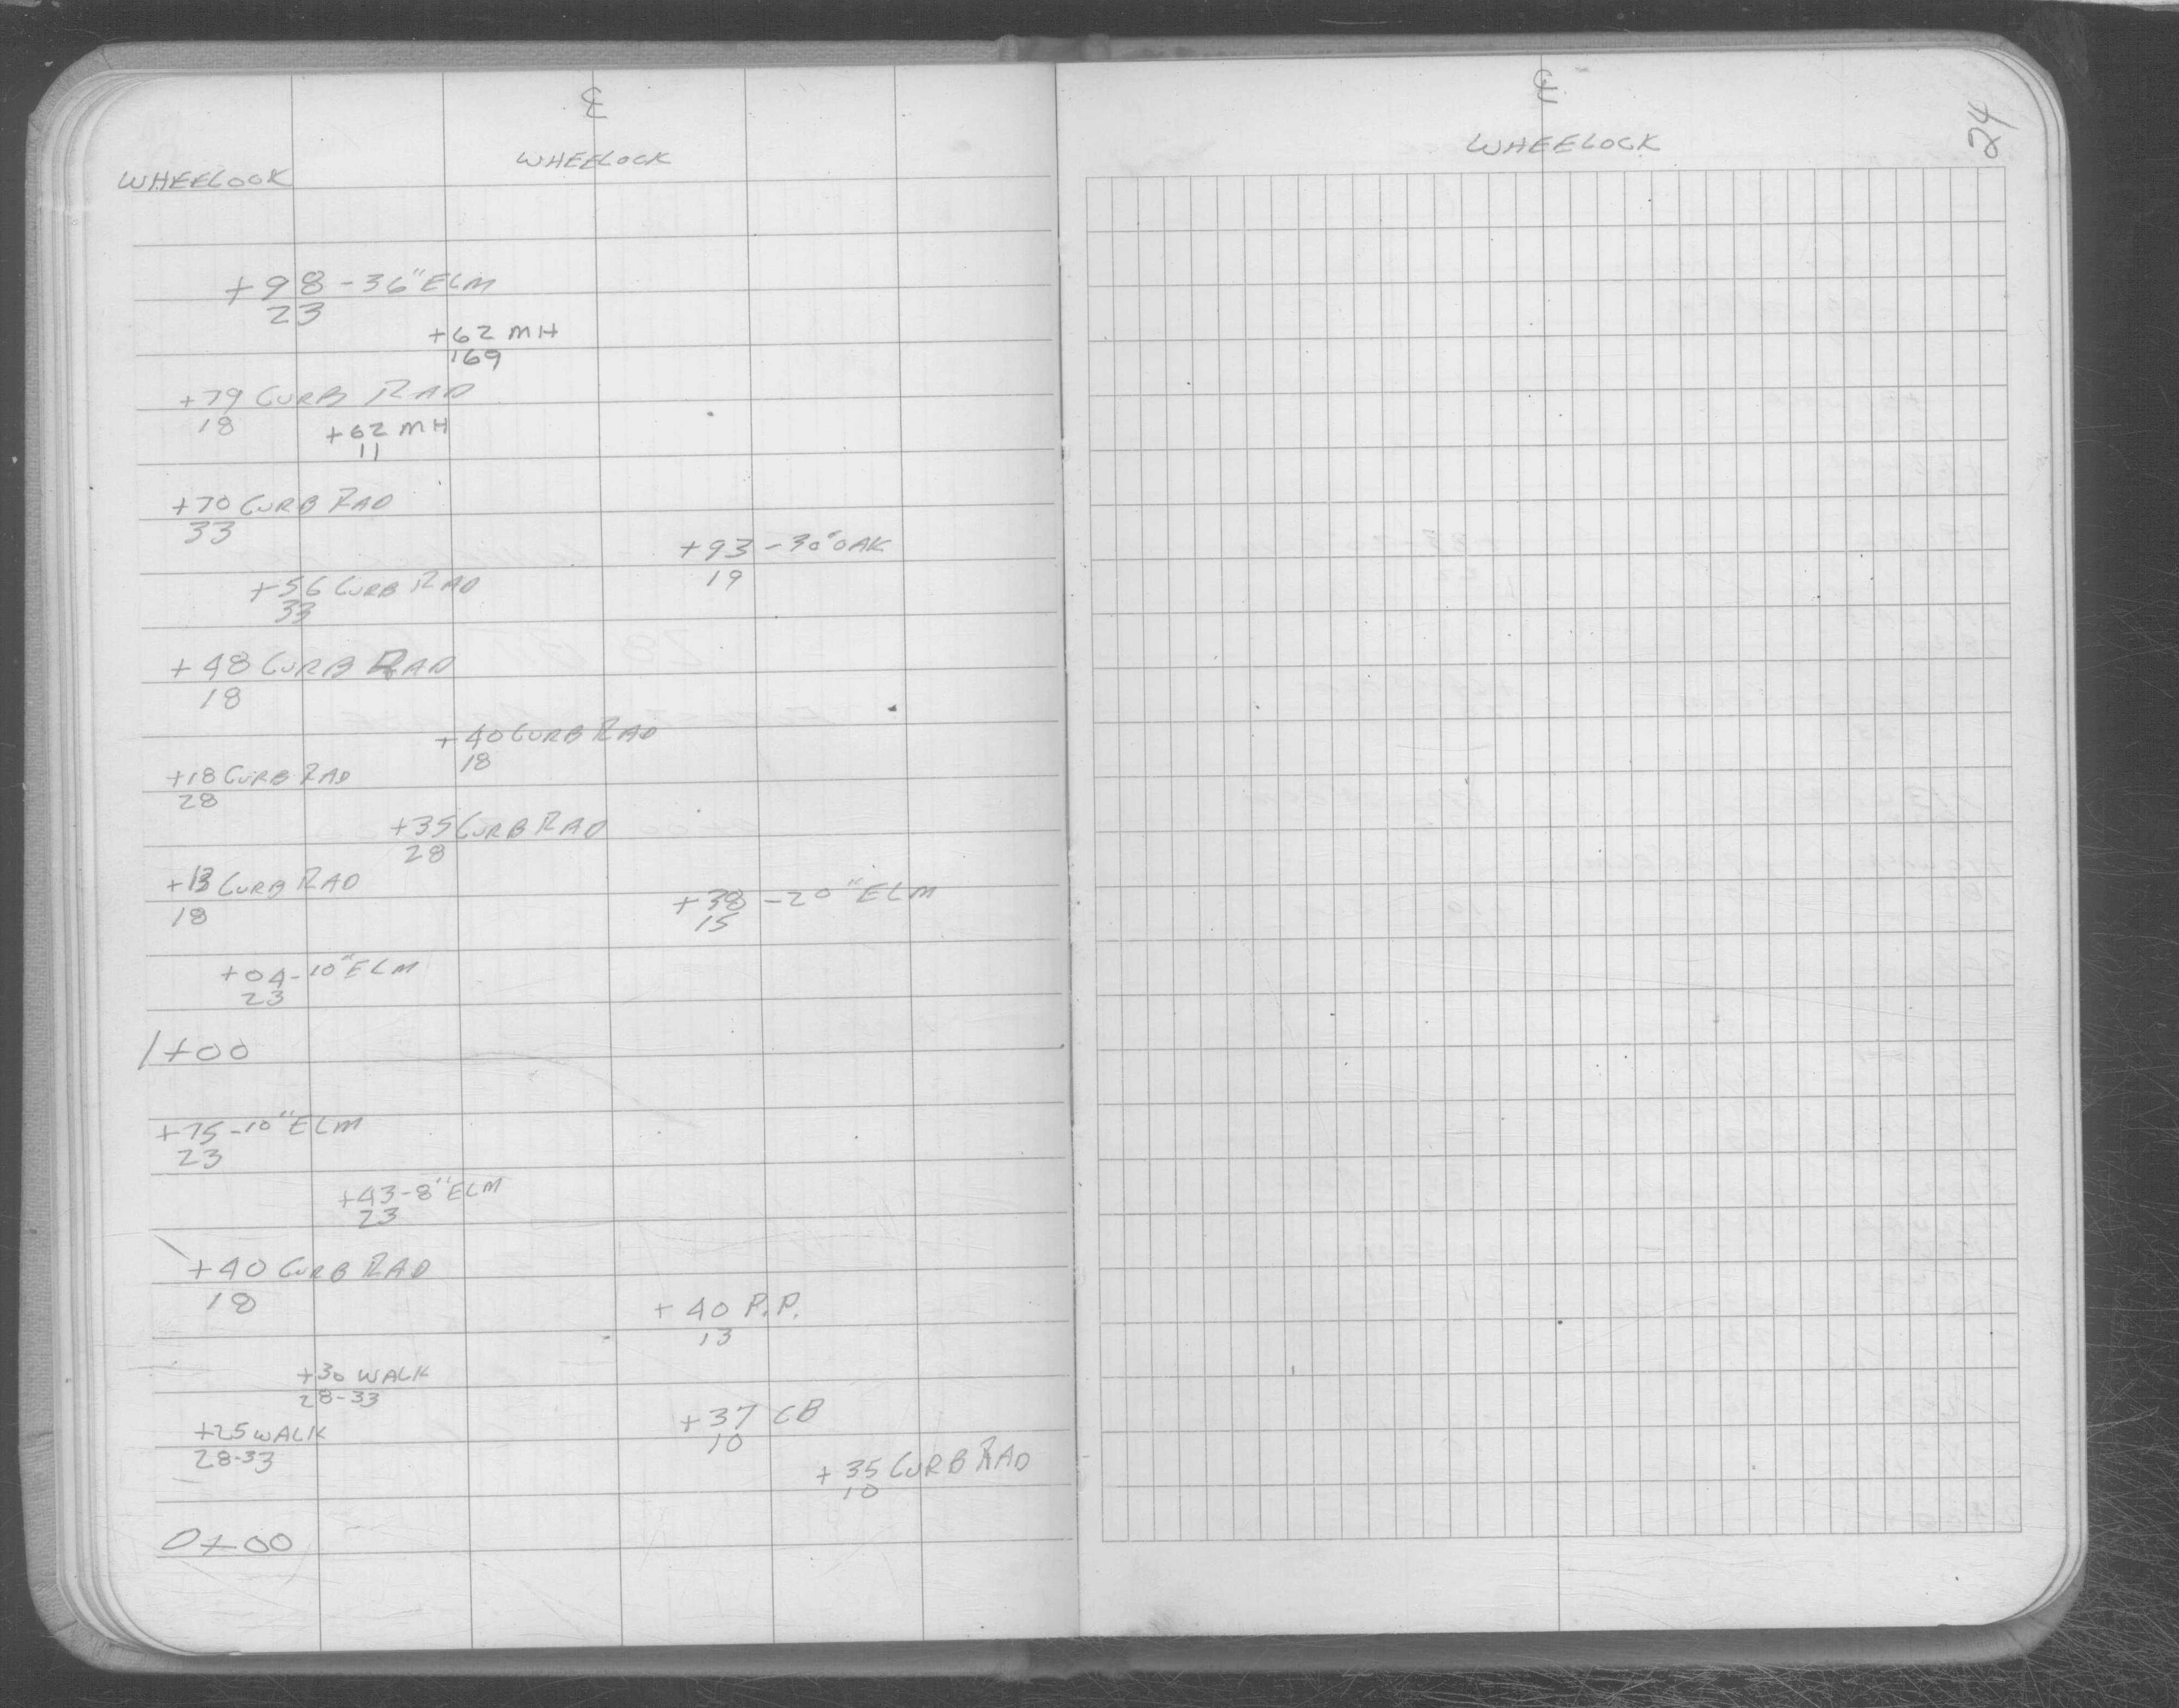 ℄
WHEELOCK
WHEELOCK
+98 - 36" ELM
23
+62 MH
169
+79 CURB RAD
18
+62 MH
11
+70 CURB RAD
33
+93 - 30" OAK
19
+56 CURB RAD
33
+48 CURB RAD
18
+40 CURB RAD
18
+18 CURB RAD
28
+35 CURB RAD
28
+13 CURB RAD
18
+38 - 20" ELM
15
+04 - 10" ELM
23
1+00
+75 - 10" ELM
23
+43 - 8" ELM
23
+40 CURB RAD
18
+40 P.P.
13
+30 WALK
28-33
+37 CB
10
+25 WALK
28-33
+35 CURB RAD
10
0+00
℄
WHEELOCK
24